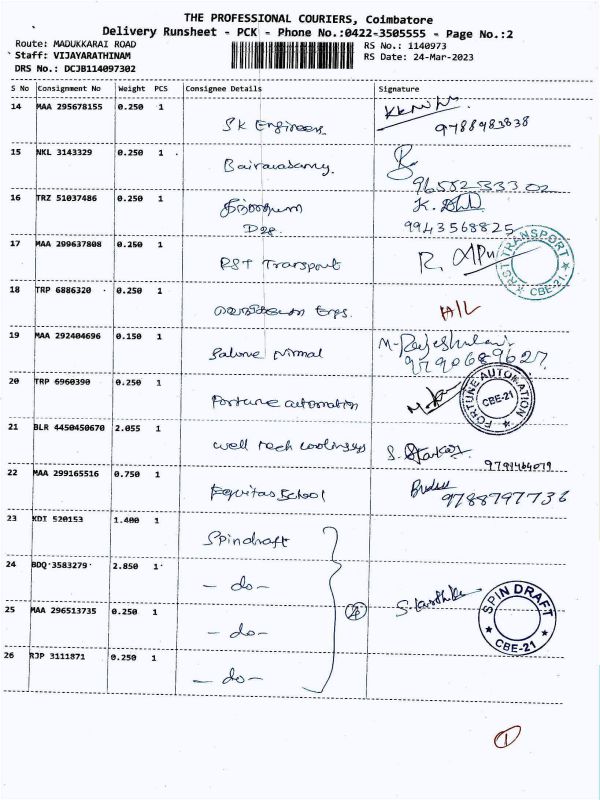 THE PROFESSIONAL COURIERS, Coimbatore
Delivery Runsheet - PCK - Phone No.:0422-3505555 - Page No.:2
Route: MADUKKARAI ROAD
RS No.: 1140973
Staff: VIJAYARATHINAM
RS Date: 24-Mar-2023
DRS No.: DCJB114097302
S No Consignment No Weight PCS Consignee Details Signature
14 MAA 295678155 0.250 1
SK Engineers 9788983838
15 NKL 3143329 0.250 1
Bairavasamy.
16 TRZ 51037486 0.250 1
9943568825
17 MAA 299637808 0.250 1
RST Transport R.
RST TRANSPORT CBE-21
18 TRP 6886320 0.250 1
19 MAA 292404696 0.150 1
Nirmal 9790689627
20 TRP 6960390 0.250 1
Fortune automation
FORTUNE AUTOMATION CBE-21
21 BLR 4450450670 2.055 1
well Tech coolingsys S.
9791464079
22 MAA 299165516 0.750 1
Equitas School 9788797736
23 KDI 520153 1.400 1
Spindraft
24 BDQ 3583279 2.850 1
- do -
S. Karthika
SPIN DRAFT CBE-21
25 MAA 296513735 0.250 1
- do -
4
26 RJP 3111871 0.250 1
- do -
1